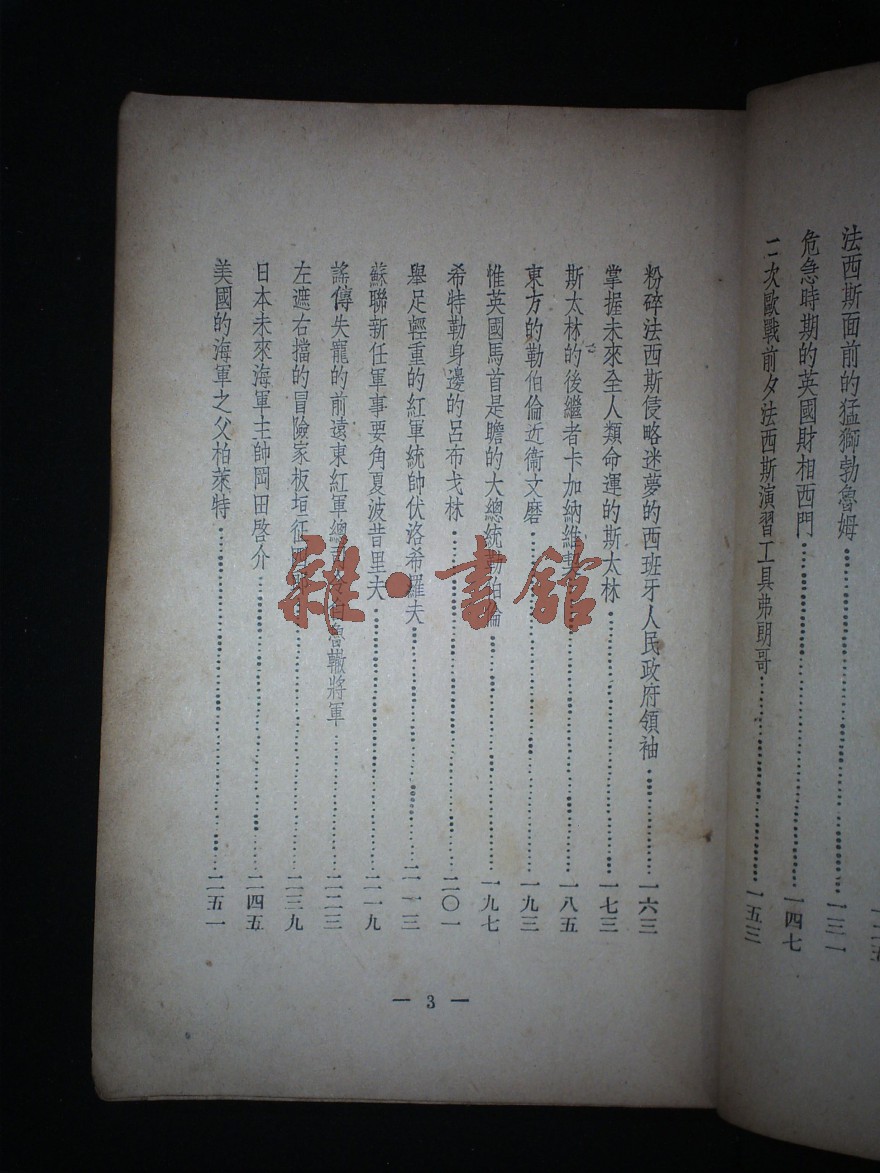 法西斯面前的猛獅勃魯姆……一三一
危急時期的英國財相西門……一四七
二次歐戰前夕法西斯演習工具弗朗哥……一五三
粉碎法西斯侵略迷夢的西班牙人民政府領袖……一六三
掌握未來全人類命運的斯太林……一七三
斯太林的後繼者卡加納維……一八五
東方的勒伯倫近衞文磨……一九三
惟英國馬首是瞻的大總統勒伯倫……一九七
希特勒身邊的呂布戈林……二〇一
舉足輕重的紅軍統帥伏洛希羅夫……二一三
蘇聯新任軍事要角夏波昔里夫……二一九
謠傳失寵的前遠東紅軍總司令白魯轍將軍……二二三
左遮右擋的冒險家板垣征……二三九
日本未來海軍主帥岡田啓介……二四五
美國的海軍之父柏萊特……二五一
— 3 —
雜·書館